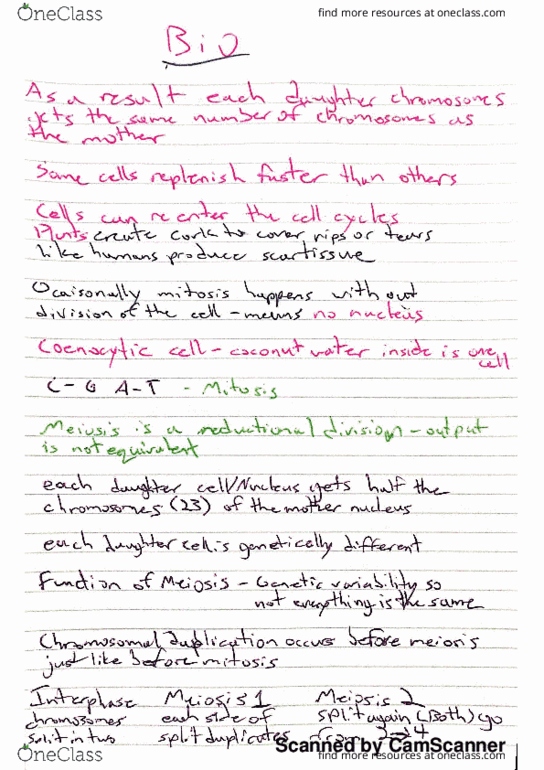 OneClass
find more resources at oneclass.com
Bio
As a result each daughter chromosomes
gets the same number of chromosomes as
the mother
Some cells replenish faster than others
Cells can re enter the cell cycles
Plants create cork to cover rips or tears
like humans produce scartissue
Ocaisonally mitosis happens with out
division of the cell - means no nucleus
Coenocytic cell - coconut water inside is one
cell
C-G A-T - Mitosis
Meiosis is a reductional division - output
is not equivalent
each daughter cell/Nucleus gets half the
chromosomes (23) of the mother nucleus
each daughter cell is genetically different
Function of Meiosis - Genetic variability so
not everything is the same
Chromosomal duplication occurs before meiosis
just like before mitosis
Interphase Meiosis 1 Meiosis 2
chromosomes each side of split again (Both) go
split in two split duplicates from 2→4
Scanned by CamScanner
OneClass
find more resources at oneclass.com